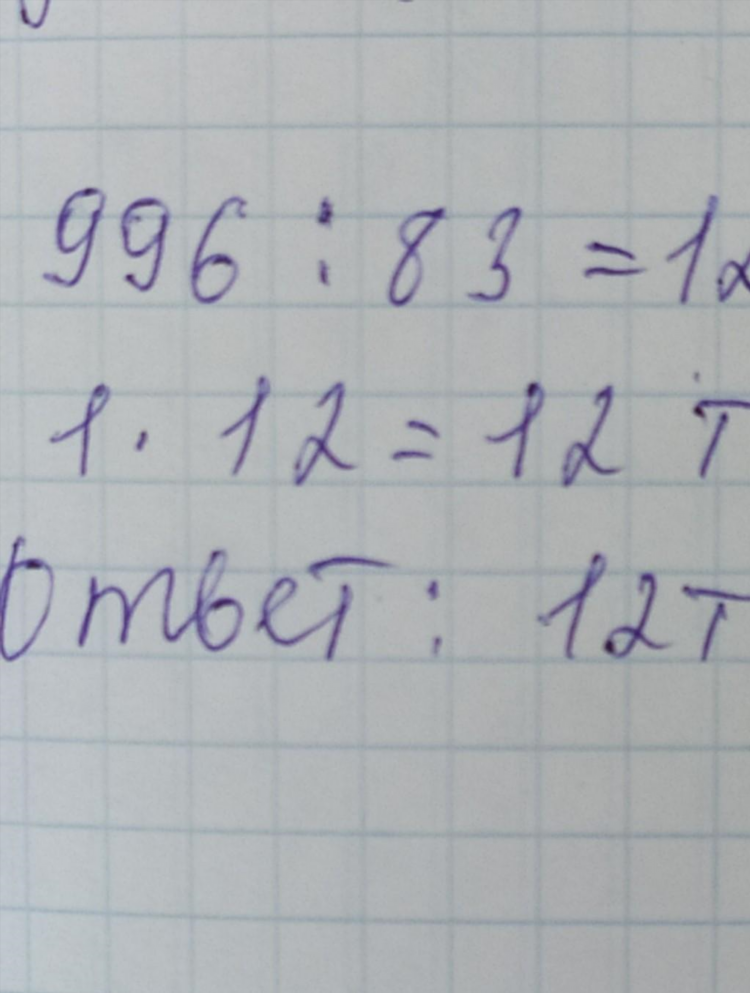 996 : 83 = 12
1 · 12 = 12 т
Ответ : 12т